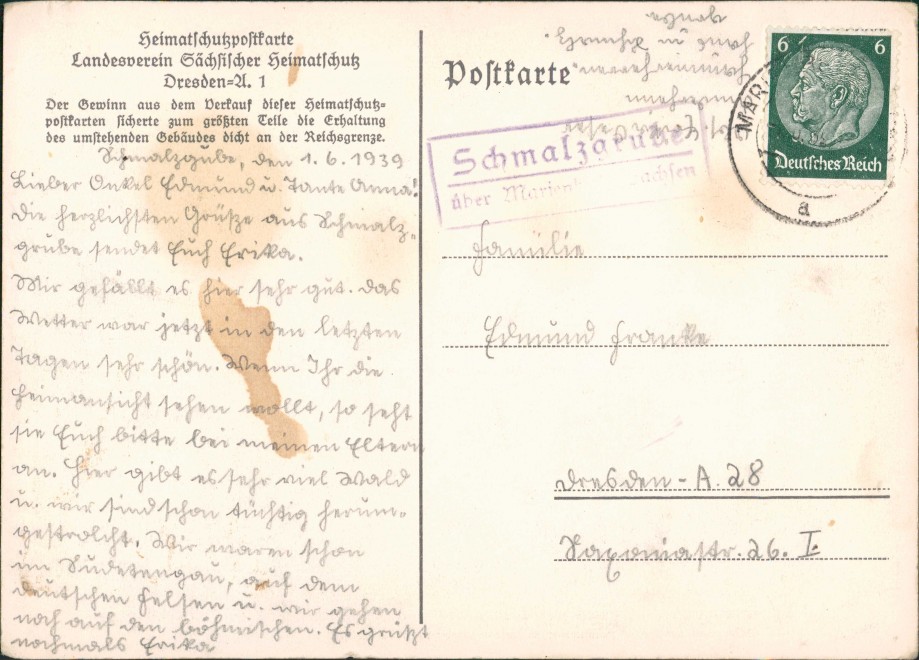 Heimatschutzpostkarte
Landesverein Sächsischer Heimatschutz
Dresden-A. 1
Der Gewinn aus dem Verkauf dieser Heimatschutz-
postkarten sicherte zum größten Teile die Erhaltung
des umstehenden Gebäudes dicht an der Reichsgrenze.
Schmalzgrube, den 1.6.1939
Lieber Onkel Edmund u. Tante Anna!
Die herzlichsten Grüsze aus Schmalz-
grube sendet Euch Erika.
Mir gefällt es hier sehr gut. Das
Wetter war jetzt in den letzten
Tagen sehr schön. Wenn Ihr die
Heimansicht sehen wollt, so seht
sie Euch bitte bei meinen Eltern
an. Hier gibt es sehr viel Wald
u. wir sind schon tüchtig herum-
gestrolcht. Wir waren schon
im Sudetengau, auf dem
deutschen Felsen u. wir gehen
noch auf den böhmischen. Es grüszt
nochmals Erika
Postkarte
6 6
Deutsches Reich
a
Schmalzgrube
über Marienb achsen
Familie
Edmund Franke
Dresden-A. 28
Saxoniastr. 26. I.